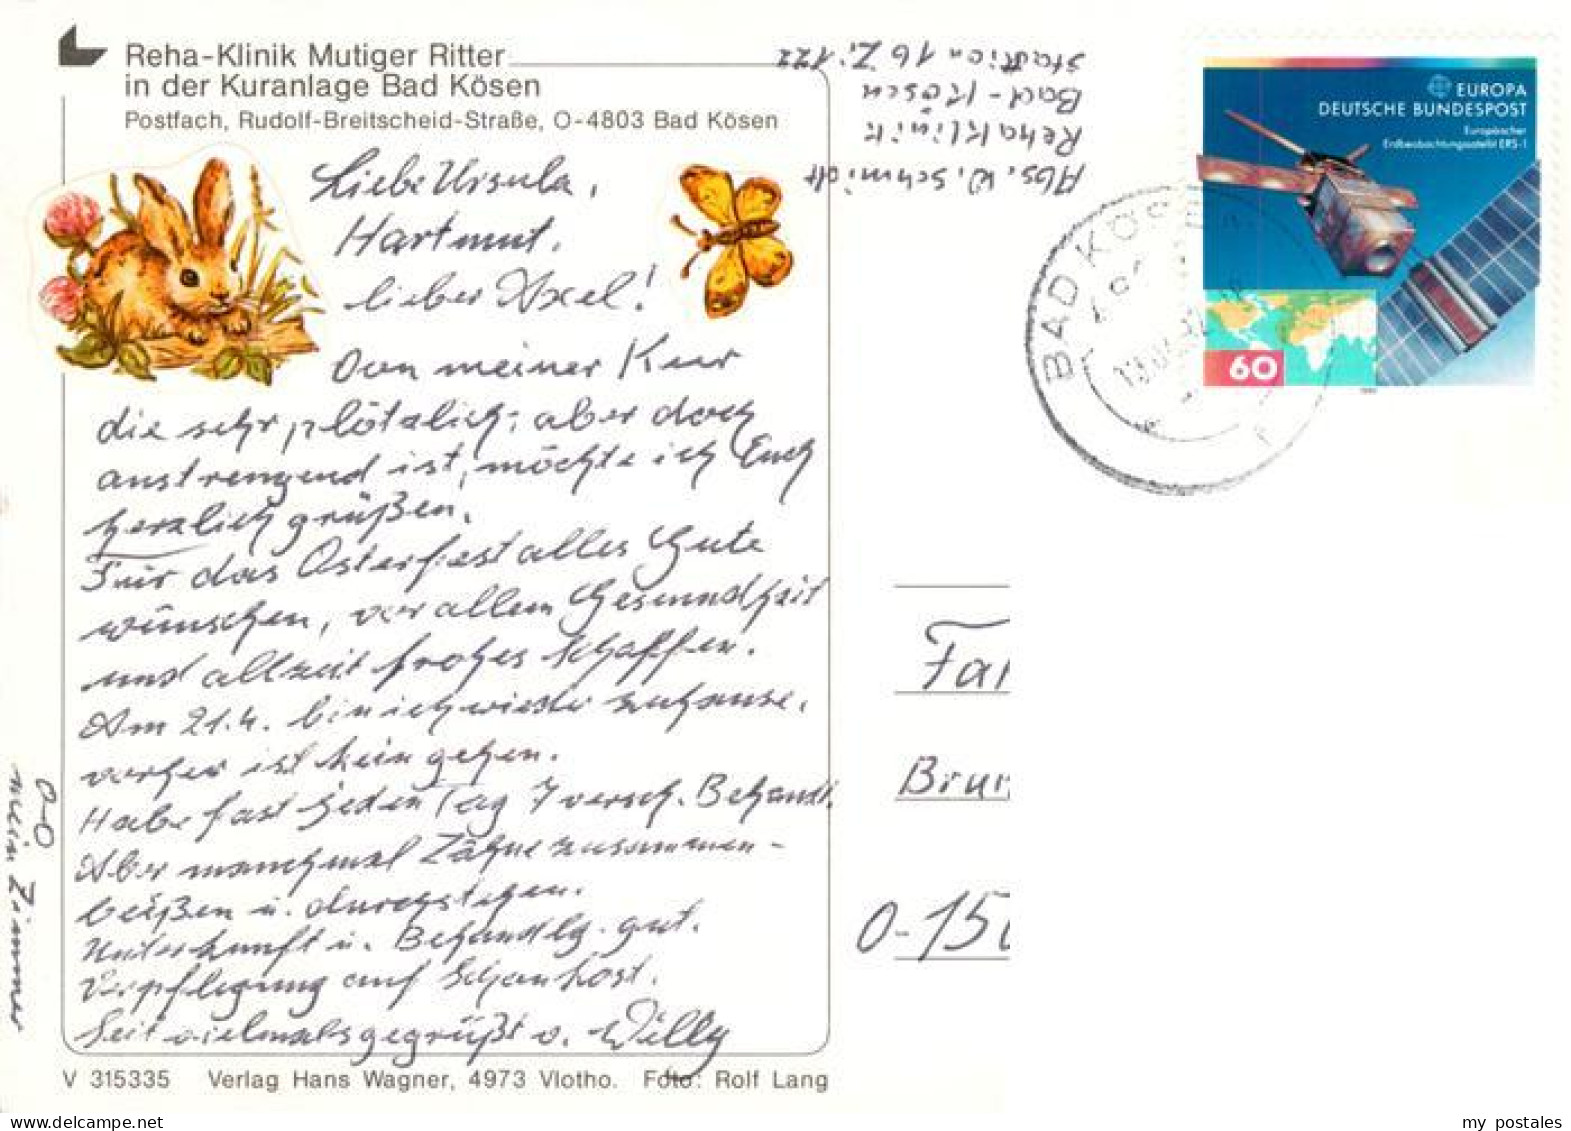 Reha-Klinik Mutiger Ritter
in der Kuranlage Bad Kösen
Postfach, Rudolf-Breitscheid-Straße, O-4803 Bad Kösen
Abs. W. Schmidt
Rehaklinik
Bad-Kösen
Station 16 Z. 122
EUROPA
DEUTSCHE BUNDESPOST
Europäischer
Erdbeobachtungssatellit ERS-1
60
BAD KÖSEN
Liebe Ursula,
Hartmut,
lieber Axel!
Von meiner Kur
die sehr plötzlich, aber doch
anstrengend ist, möchte ich Euch
herzlich grüßen.
Für das Osterfest alles Gute
wünschen, vor allem Gesundheit
und allzeit frohes Schaffen.
Am 21.4. bin ich wieder zuhause,
vorher ist kein gehen.
Habe fast jeden Tag 7 versch. Behandl.
Aber manchmal Zähne zusammen-
beißen u. durchstehen.
Unterkunft u. Behandlg. gut.
Verpflegung auf Schonkost.
Seit vielmals gegrüßt v. Willy
O-O
mein Zimmer
Fa
Brun
O-15
V 315335 Verlag Hans Wagner, 4973 Vlotho. Foto: Rolf Lang
my postales